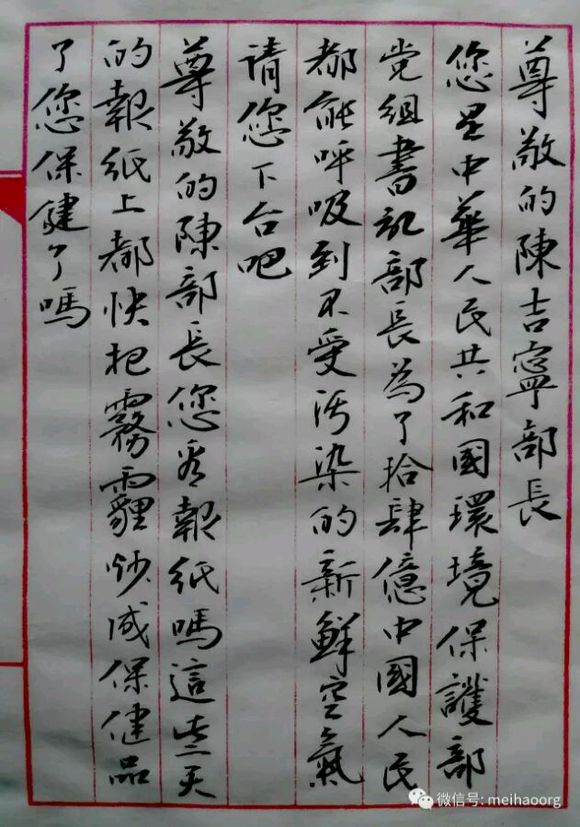 尊敬的陳吉寧部长
您是中華人民共和國環境保護部
党组書记部長為了拾肆億中國人民
都能呼吸到不受污染的新鮮空氣
请您下台吧
尊敬的陳部長您看報纸嗎這些天
的報纸上都快把霧霾炒成保健品
了您保健了嗎
微信号: meihaoorg